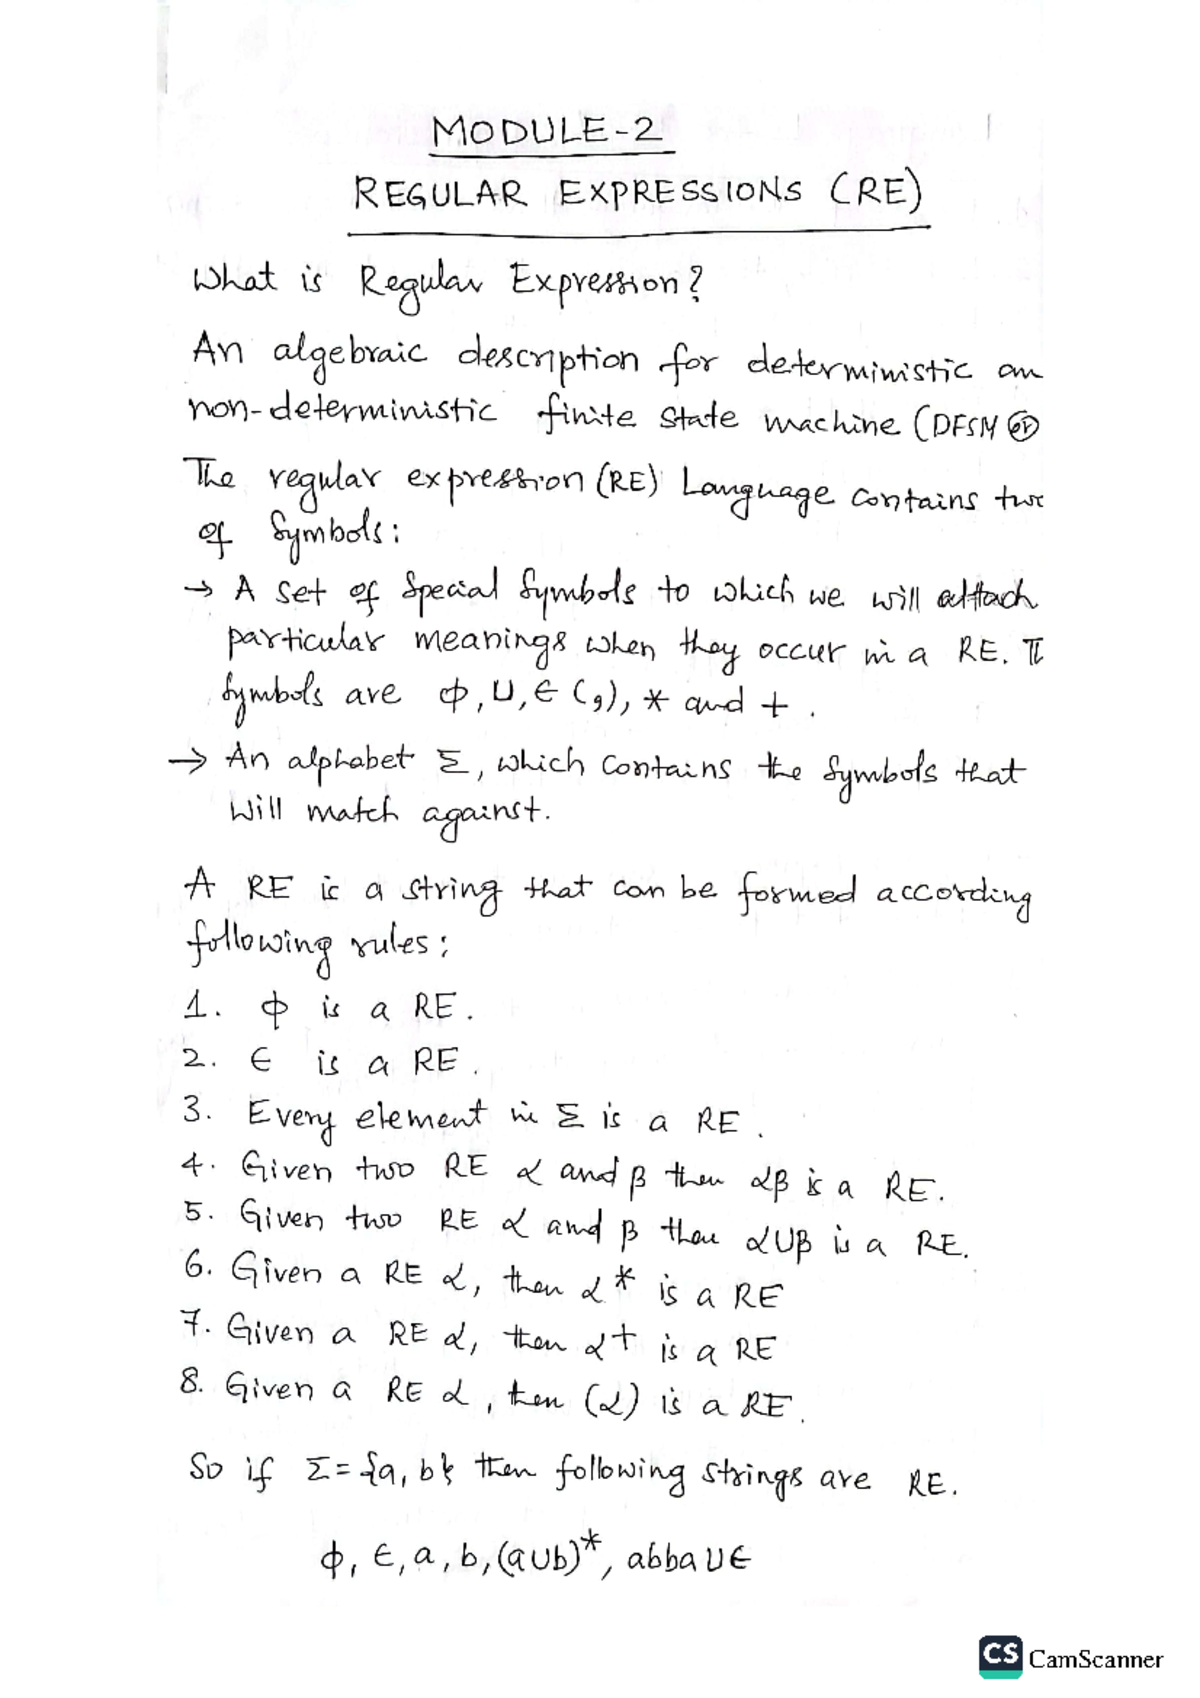 MODULE-2
REGULAR EXPRESSIONS (RE)
What is Regular Expression?
An algebraic description for deterministic
non-deterministic finite state machine (DFSM or
The regular expression (RE) Language contains
of Symbols:
→ A set of Special Symbols to which we will attach
particular meanings when they occur in a RE.
Symbols are ϕ, U, ∈ (,), * and + .
→ An alphabet Σ, which contains the symbols that
will match against.
A RE is a string that can be formed according
following rules:
1. ϕ is a RE.
2. ∈ is a RE.
3. Every element in Σ is a RE.
4. Given two RE α and β then αβ is a RE.
5. Given two RE α and β then αUβ is a RE.
6. Given a RE α, then α* is a RE
7. Given a RE α, then α+ is a RE
8. Given a RE α, then (α) is a RE.
So if Σ = {a, b} then following strings are RE.
ϕ, ∈, a, b, (aUb)*, abba U ∈
CS CamScanner